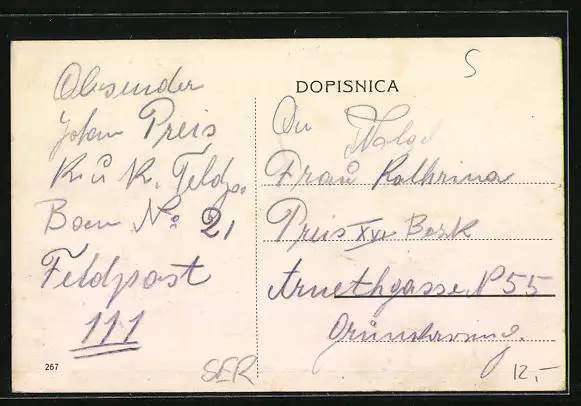 DOPISNICA
S
Absender
Johan Preis
K. u. K. Feldp.
Baon No 21
Feldpost
111
An
Frau Kathrina
Preis XVI Bezk
Arnethgasse N 55
267
SER
12,-